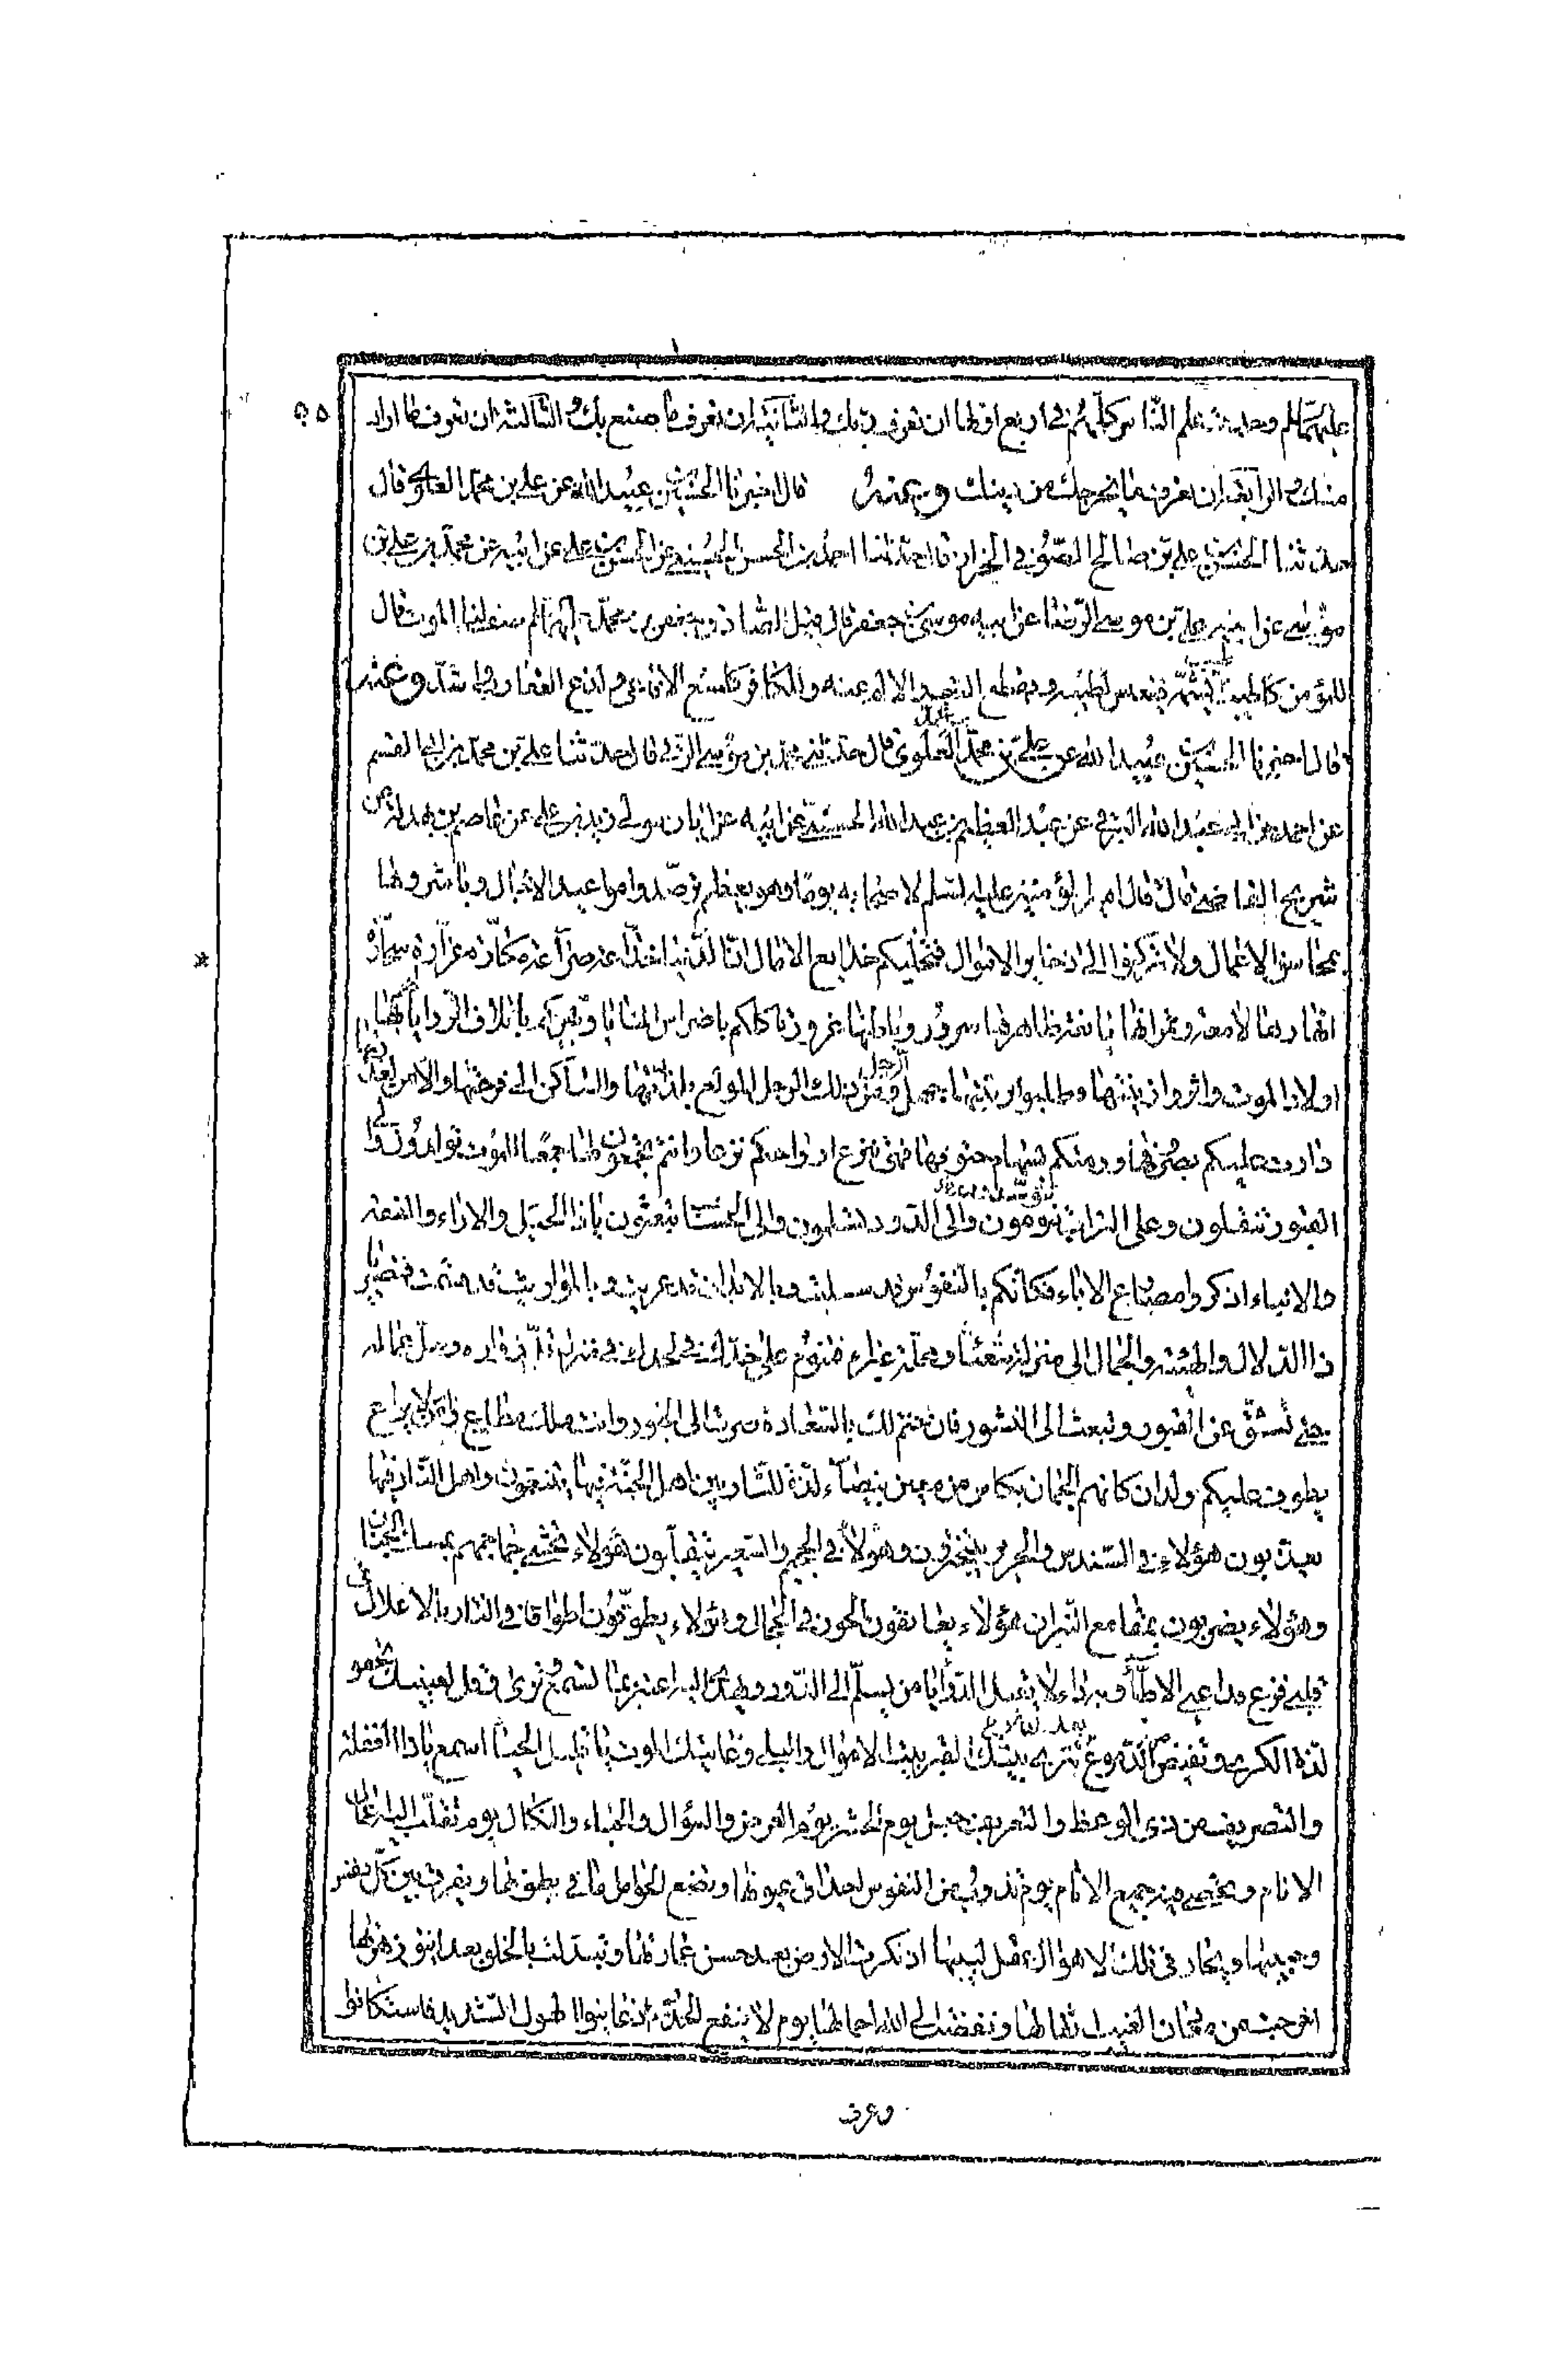 وجدت علم الناس كلهم في اربع اولها ان تعرف ربك والثانية ان تعرف ما صنع بك والثالثة ان تعرف ما اراد
منك والرابعة ان تعرف ما يخرجك من دينك وعنه قال اخبرنا الحسين بن عبيد الله عن علي بن محمد العلوي قال
حدثنا الحسين بن علي بن صالح الصوفي الخزاز قال حدثنا احمد بن الحسن الحسيني عن الحسن بن علي عن ابيه عن محمد بن علي بن
موسى عن ابيه علي بن موسى الرضا عن ابيه موسى بن جعفر قال قيل للصادق جعفر بن محمد صف لنا الموت قال
للمؤمن كاطيب فينعس لطيبه وينقطع التعب والالم عنه وللكافر كلسع الافاعي ولدغ العقارب واشد وعنه
قال اخبرنا الحسين بن عبيد الله عن علي بن محمد العلوي قال حدثني محمد بن موسى الرقي قال حدثنا علي بن محمد بن ابي القسم
عن احمد بن ابي عبد الله البرقي عن عبد العظيم بن عبد الله الحسني عن ابيه عن ابان مولى زيد بن علي عن عاصم بن بهدلة عن
شريح القاضي قال قال امير المؤمنين عليه السلم لاصحابه يوما وهو يعظهم ترصدوا مواعيد الاجال وباشروها
بمحاسن الاعمال ولا تركنوا الى ذخاير الاموال فتخليكم خدايع الامال ان الدنيا خداعة صراعة مكارة غرارة سحارة
انهارها لامعة وثمراتها يانعة ظاهرها سرور وباطنها غرور تاكلكم باضراس المنايا وتبيركم باتلاف الرزايا لها
اولاد الموت واثروا زينتها وطلبوا رتبتها جهل الرجل ومن ذلك الرجل المولع بلذاتها والساكن الى فرحتها والامن لغدرتها
دارت عليكم بصروفها ورمتكم بسهام حتوفها فهي تنزع ارواحكم نزعا وانتم تجمعون لها جمعا للموت تولدون والى
القبور تنقلون وعلى التراب تنومون والى الدود تسلمون والى الحساب تبعثون يا ذا الحيل والاراء والفقه
والانباء اذكروا مصارع الاباء فكانكم بالنفوس قد سلبت وبالابدان قد عريت وبالمواريث قد قسمت فتصير
ذا الدلال والهيئة والجمال الى منزلة شعثاء ومحلة غبراء فتنوم على خدك في لحدك في منزل قل زواره ومل عماله
حتى تشق عن القبور وتبعث الى النشور فان ختم لك بالسعادة صرت الى الحبور وانت ملك مطاع وامن لا يراع
يطوف عليكم ولدان كانهم الجمان بكاس من معين بيضاء لذة للشاربين اهل الجنة فيها يتنعمون واهل النار فيها
يعذبون هؤلاء في السندس والحرير يتبخترون وهؤلاء في الجحيم والسعير يتقلبون هؤلاء تحشى جماجمهم بمسك الجنان
وهؤلاء يضربون بمقامع النيران هؤلاء يعانقون الحور في الحجال وهؤلاء يطوقون اطواقا في النار بالاغلال
قلبه فزع قد اعيى الاطباء وبه داء لا يقبل الدواء يا من يسلم الى الدود ويهدى اليه اعتبر بما تسمع وترى وقل لعينيك تجفو
لذة الكرى وتفيض الدموع بيتك القبر بيت الاهوال والبلى وغايتك الموت يا قليل الحياء اسمع يا ذا الغفلة
والتصريف من ذي الوعظ والتعريف جعل يوم الحشر يوم العرض والسؤال والحباء والنكال يوم تقلب اليه اعمال
الانام وتحصى فيه جميع الاثام يوم تذوب من النفوس احداق عيونها وتضع الحوامل ما في بطونها ويفرق بين كل نفس
وحبيبها ويحار في تلك الاهوال عقل لبيبها اذ تنكرت الارض بعد حسن عمارتها وتبدلت بالخلق بعد انيق زهرتها
اخرجت من معادن الغيب اثقالها ونفضت الى الله احمالها يوم لا ينفع الجد اذ عاينوا الهول الشديد فاستكانوا
وعرف